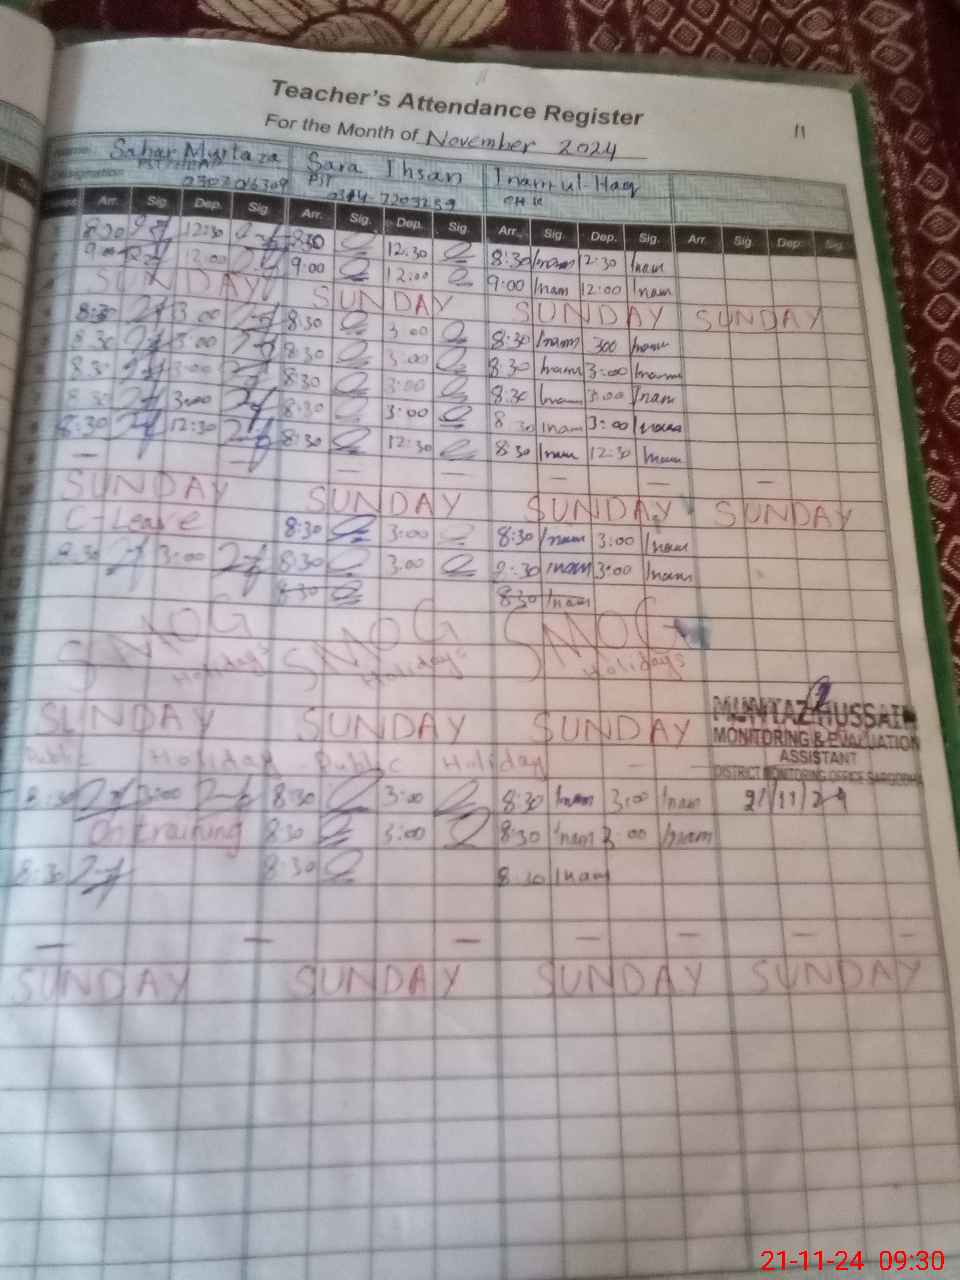 Teacher's Attendance Register
11
For the Month of November 2024
Name Sahar Murtaza Sara Ihsan Inam-ul-Haq
Designation PST PST
Arr. Sig. Dep. Sig. Arr. Sig. Dep. Sig. Arr. Sig. Dep. Sig. Arr. Sig. Dep. Sig.
8:30 12:30 8:30 12:30 8:30 Inam 12:30 Inam
9:00 12:00 9:00 12:00 9:00 Inam 12:00 Inam
SUNDAY SUNDAY SUNDAY SUNDAY
8:30 3:00 8:30 3:00 8:30 Inam 300 Inam
8:30 3:00 8:30 3:00 8:30 Inam 3:00 Inam
8:30 3:00 8:30 3:00 8:30 Inam 3:00 Inam
8:30 3:00 8:30 3:00 8 30 Inam 3:00 Inam
8:30 12:30 8:30 12:30 8:30 Inam 12:30 Inam
— — — — — — —
SUNDAY SUNDAY SUNDAY SUNDAY
C-Leave 8:30 3:00 8:30 Inam 3:00 Inam
8:30 3:00 8:30 3:00 Inam 3:00 Inam
8:30 8:30 Inam
SMOG SMOG SMOG
Holidays Holidays Holidays
SUNDAY SUNDAY SUNDAY
MUMTAZ HUSSAIN
MONITORING & EVALUATION
ASSISTANT
DISTRICT MONITORING OFFICE SARGODHA
21/11/24
Public Holiday Public Holiday — —
8:30 3:00 8:30 3:00 8:30 Inam 3:00 Inam
On training 8:30 3:00 8:30 Inam 3:00 Inam
8:30 8:30 8:30 Inam
— — — — — — —
SUNDAY SUNDAY SUNDAY SUNDAY
21-11-24 09:30